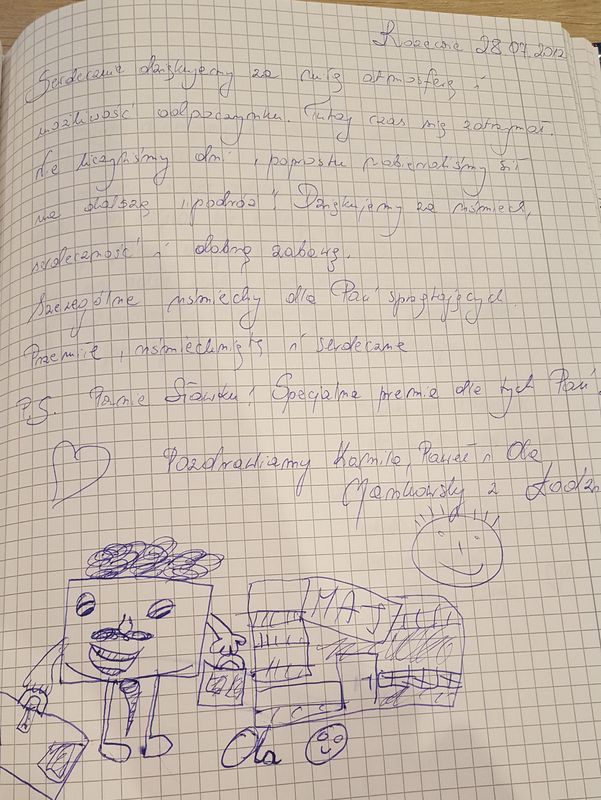 28.07.2012
Serdecznie dziękujemy za miłą atmosferę i
możliwość odpoczynku. Tutaj czas się zatrzymał.
Nie liczyliśmy dni, poprostu nabieraliśmy sił
na dalszą "podróż". Dziękujemy za uśmiech,
serdeczność i dobrą zabawę.
Szczególne uśmiechy dla Pań sprzątających
Przemiłe, uśmiechnięte i serdeczne
P.S. Panie Sławku! Specjalna premia dla tych Pań.
Pozdrawiamy Kamila, Paweł i Ola
z Łodzi
MAJ
Ola